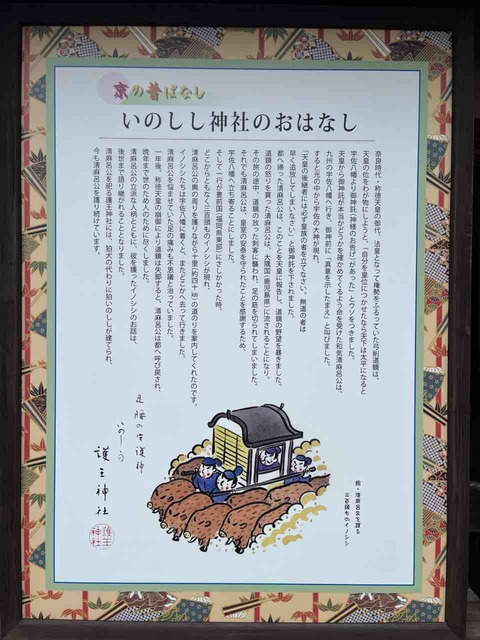 京の昔ばなし
いのしし神社のおはなし
奈良時代・称徳天皇の御代、法皇となって権勢をふるっていた弓削道鏡は、
天皇の位をわが物にしようと、「自分を皇位につかせたなら天下は太平になると
宇佐八幡より御神託（神様のお告げ）があった」とウソをつきました。
天皇から御神託が本当かどうかを確かめてくるよう命を受けた和気清麻呂公は、
九州の宇佐八幡へ行き、御神前に「真意を示したまえ」と叫びました。
すると光の中から宇佐の大神が現れ、
「天皇の後継者には必ず皇族の者を立てなさい。無道の者は
早く追放してしまいなさい」と御神託を下されました。
都へ帰った清麻呂公は、このことを天皇に報告し、道鏡の野望を暴きました。
道鏡の怒りを買った清麻呂公は、大隅国（鹿児島県）に流されることになり、
その旅の途中、道鏡の放った刺客に襲われ、足の筋を切られてしまいました。
それでも清麻呂公は、皇室の安泰を守られたことを感謝するため、
宇佐八幡へ立ち寄ることにしました。
そして一行が豊前国（福岡県東部）にさしかかった時、
どこからともなく三百頭ものイノシシが現れ、
清麻呂公の輿の周りを護りながら、十里（約四十㌔）の道のりを案内してくれたのです。
イノシシたちは宇佐八幡に着くと、どこかに去って行きました。
清麻呂公を悩ませていた足の痛みも不思議と治っていました。
一年後、称徳天皇の崩御により道鏡は失脚すると、清麻呂公は都へ呼び戻され、
晩年まで世のため人のために尽くしました。
清麻呂公の立派な人柄とともに、彼を護ったイノシシのお話は、
後世まで語り継がれることとなりました。
清麻呂公を祀る護王神社には、狛犬の代わりに狛いのししが建てられ、
今も清麻呂公を護り続けています。
足腰の守護神
護王神社
護王神社
絵・清麻呂公を護る
三百頭ものイノシシ